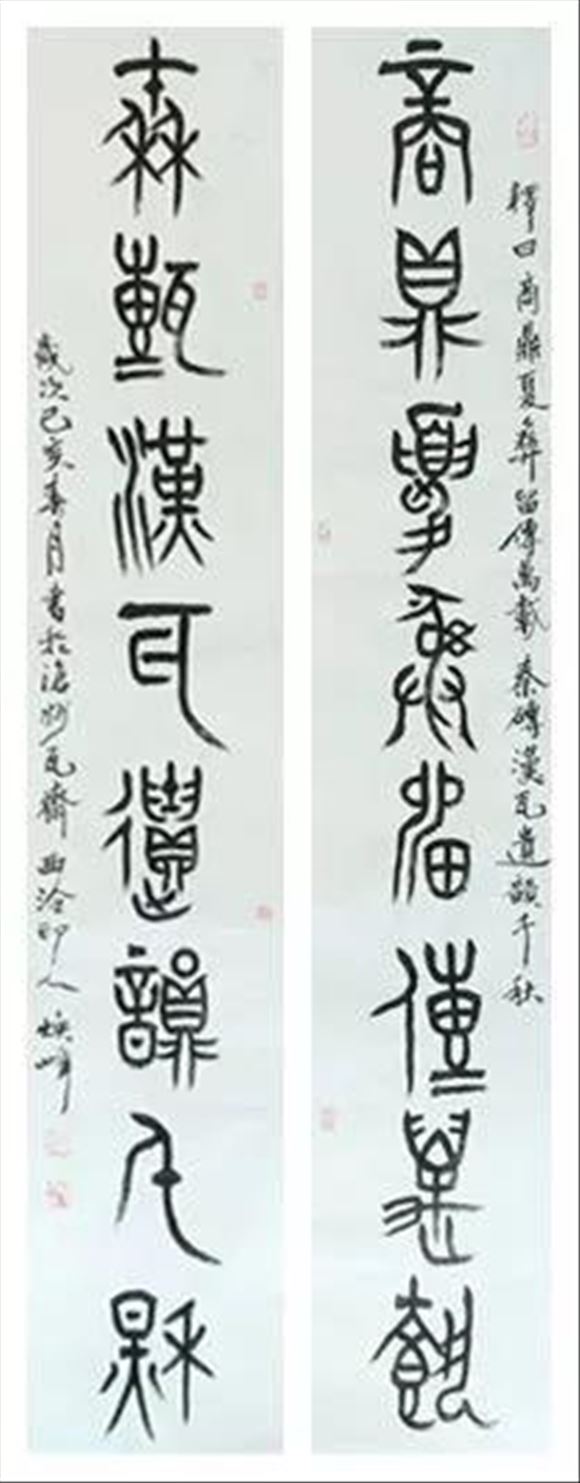 釋曰商鼎夏彝留傳萬載秦磚漢瓦遺韻千秋
商鼎夏彝留傳萬載
秦甎漢瓦遺韻千秋
歲次己亥春月書於滄州瓦齋西泠印人煥峰